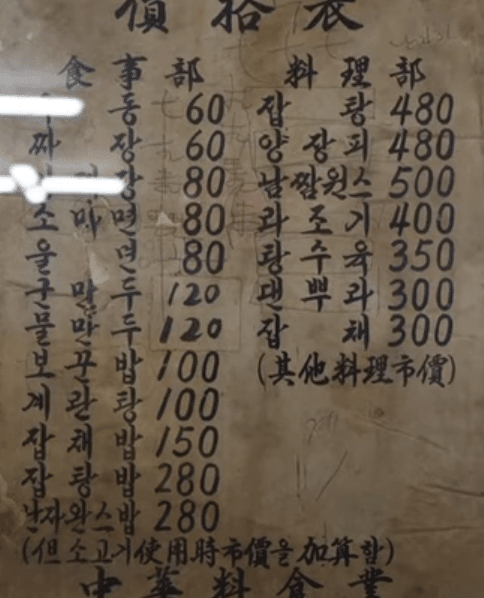 價格表
食事部
동 60
짜장 60
장 80
소마면 80
울면 80
군만두 120
물만두 120
보꾼밥 100
계란탕 100
잡채밥 150
잡탕밥 280
난자완스밥 280
料理部
잡탕 480
양장피 480
500
라조기 400
탕수육 350
덴뿌라 300
잡채 300
(其他料理市價)
(但 소고기使用時市價을 加算함)
中華料食業